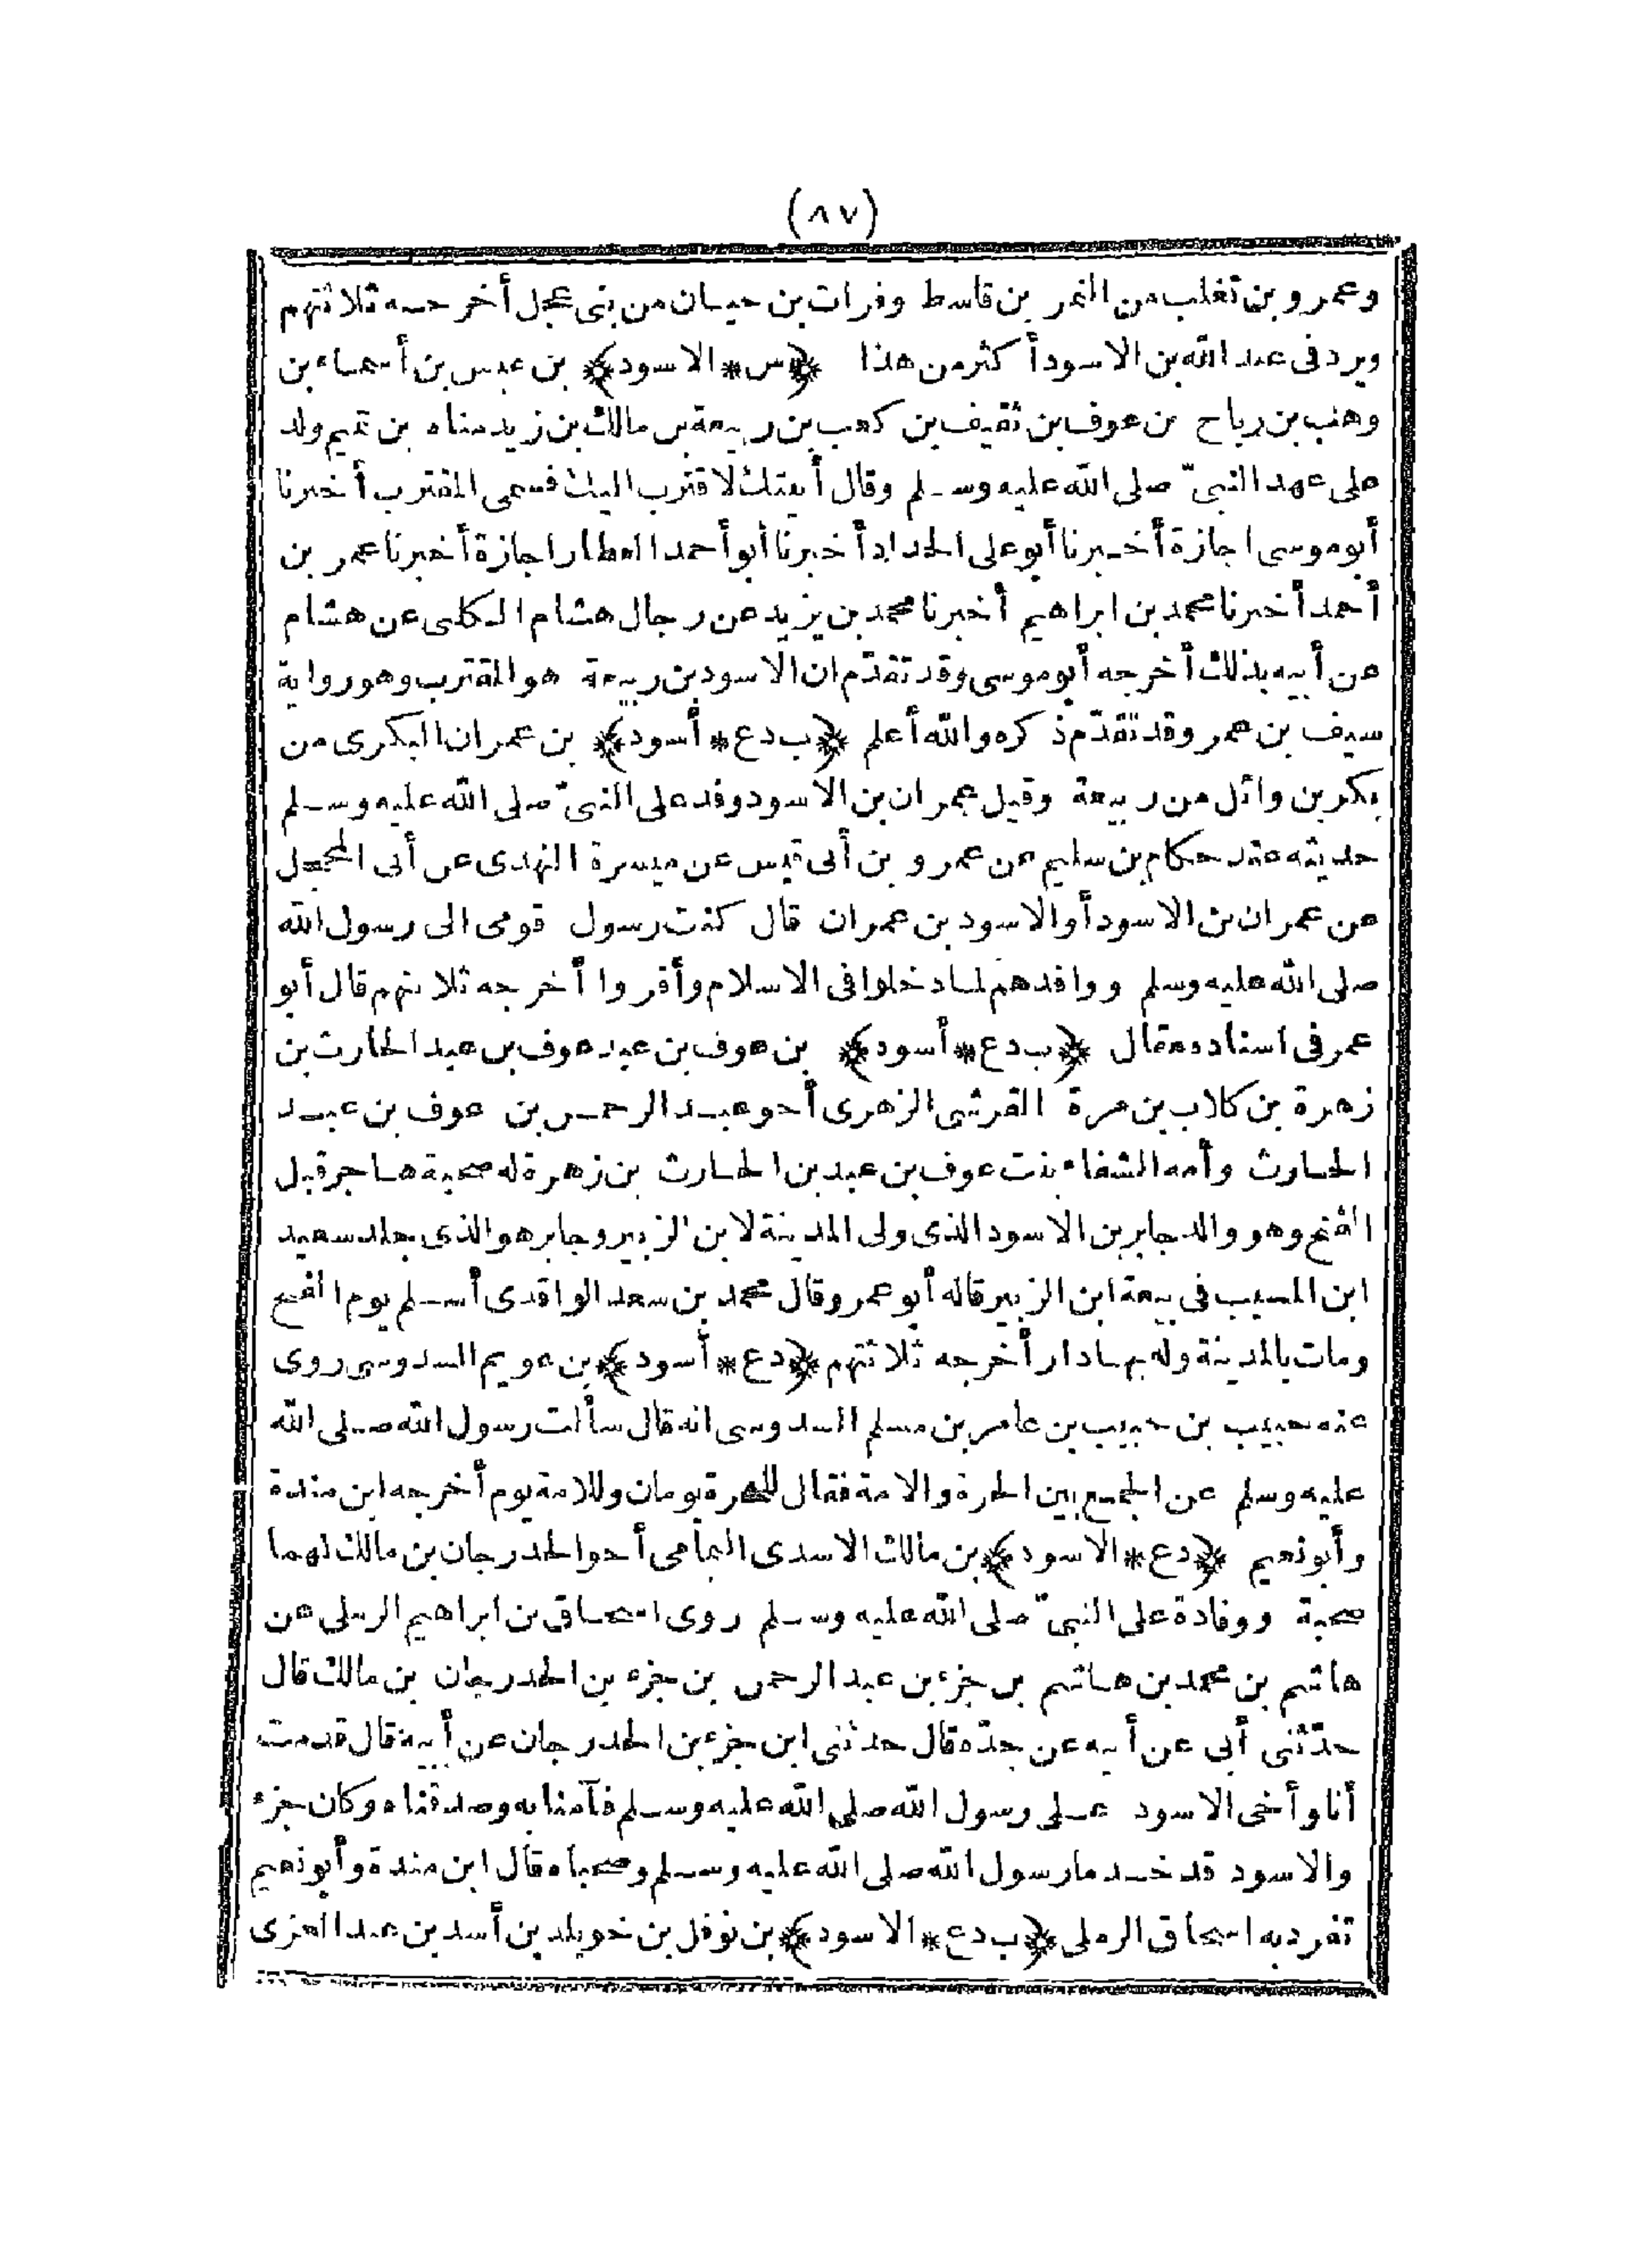 (٨٧)
وعمرو بن تغلب من النمر بن قاسط وفرات بن حيان من بنى عجل أخرجه ثلاثتهم
ويرد فى عبد الله بن الاسود أكثر من هذا ﴿س * الاسود﴾ بن عبس بن أسماء بن
وهب بن رياح بن عوف بن ثقيف بن كعب بن ربيعة بن مالك بن زيد مناه بن تميم ولد
على عهد النبىّ صلى الله عليه وسلم وقال أيتك لا قترب اليك فسمى المقترب أخبرنا
أبو موسى اجازة أخبرنا أبو على الحداد أخبرنا أبو أحمد العطار اجازة أخبرنا عمر بن
أحمد أخبرنا محمد بن ابراهيم أخبرنا محمد بن يزيد عن رجال هشام الكلبى عن هشام
عن أبيه بذلك أخرجه أبو موسى وقد تقدّم ان الاسود بن ربيعة هو المقترب وهو رواية
سيف بن عمر وقد تقدّم ذكره والله أعلم ﴿ب دع * أسود﴾ بن عمران البكرى من
بكر بن وائل من ربيعة وقيل عمران بن الاسود وفد على النبىّ صلى الله عليه وسلم
حديثه عند حكام بن سليم عن عمرو بن أبى قيس عن ميسرة النهدى عن أبى المحجل
عن عمران بن الاسود أو الاسود بن عمران قال كنت رسول قومى الى رسول الله
صلى الله عليه وسلم ووافدهم لما دخلوا فى الاسلام وأقروا أخرجه ثلاثتهم قال أبو
عمر فى اسناده مقال ﴿ب دع * أسود﴾ بن عوف بن عبد عوف بن عبد الحارث بن
زهرة بن كلاب بن مرة القرشى الزهرى أخو عبد الرحمن بن عوف بن عبد
الحارث وأمه الشفاء بنت عوف بن عبد بن الحارث بن زهرة له صحبة هاجر قبل
الفتح وهو والد جابر بن الاسود الذى ولى المدينة لابن الزبير وجابر هو الذى جلد سعيد
ابن المسيب فى بيعة ابن الزبير قاله أبو عمر وقال محمد بن سعد الواقدى أسلم يوم الفتح
ومات بالمدينة وله بها دار أخرجه ثلاثتهم ﴿دع * أسود﴾ بن عويم السدوسى روى
عنه حبيب بن حبيب بن عامر بن مسلم السدوسى انه قال سألت رسول الله صلى الله
عليه وسلم عن الجمع بين الحرة والامة فقال للحرة يومان وللامة يوم أخرجه ابن مندة
وأبو نعيم ﴿دع * الاسود﴾ بن مالك الاسدى اليمامى أخو الحدرجان بن مالك لهما
صحبة ووفادة على النبىّ صلى الله عليه وسلم روى اسحاق بن ابراهيم الرملى عن
هاشم بن محمد بن هاشم بن جزء بن عبد الرحمن بن جزء بن الحدرجان بن مالك قال
حدّثنى أبى عن أبيه عن جدّه قال حدثنى ابن جزء بن الحدرجان عن أبيه قال قدمت
أنا وأخى الاسود على رسول الله صلى الله عليه وسلم فآمنا به وصدقناه وكان جزء
والاسود قد خدما رسول الله صلى الله عليه وسلم وصحباه قال ابن مندة وأبو نعيم
تفرد به اسحاق الرملى ﴿ب دع * الاسود﴾ بن نوفل بن خويلد بن أسد بن عبد العزى